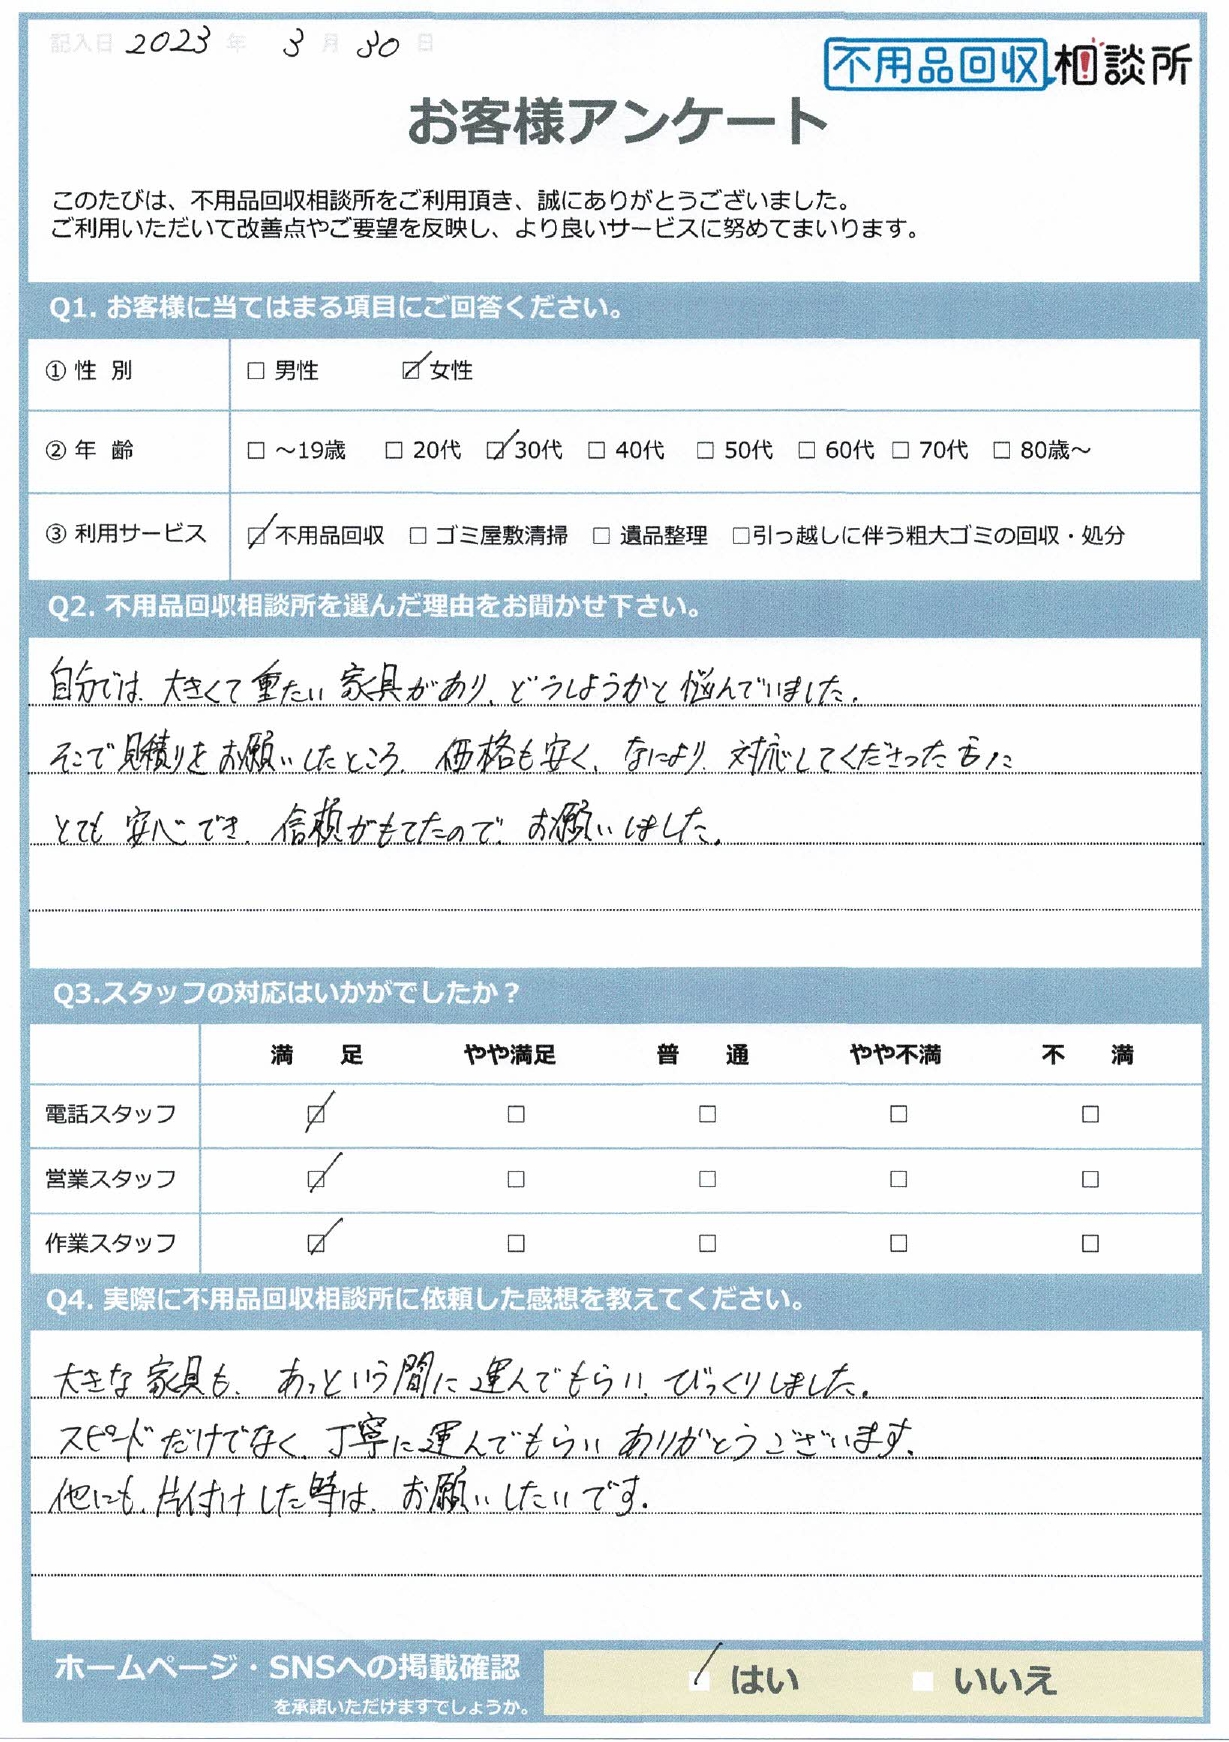 記入日 2023 年 3 月 30 日
不用品回収相談所
お客様アンケート
このたびは、不用品回収相談所をご利用頂き、誠にありがとうございました。
ご利用いただいて改善点やご要望を反映し、より良いサービスに努めてまいります。
Q1. お客様に当てはまる項目にご回答ください。
① 性 別 □ 男性 ☑ 女性
② 年 齢 □ ～19歳 □ 20代 ☑ 30代 □ 40代 □ 50代 □ 60代 □ 70代 □ 80歳～
③ 利用サービス ☑ 不用品回収 □ ゴミ屋敷清掃 □ 遺品整理 □引っ越しに伴う粗大ゴミの回収・処分
Q2. 不用品回収相談所を選んだ理由をお聞かせ下さい。
自分では、大きくて重たい家具があり、どうしようかと悩んでいました。
そこで見積りをお願いしたところ、価格も安く、なにより、対応してくださった方に
とても安心でき、信頼がもてたので、お願いしました。
Q3.スタッフの対応はいかがでしたか？
満 足 やや満足 普 通 やや不満 不 満
電話スタッフ ☑ □ □ □ □
営業スタッフ ☑ □ □ □ □
作業スタッフ ☑ □ □ □ □
Q4. 実際に不用品回収相談所に依頼した感想を教えてください。
大きな家具も、あっという間に運んでもらい、びっくりしました。
スピードだけでなく、丁寧に運んでもらいありがとうございます。
他にも、片付けした時は、お願いしたいです。
ホームページ・SNSへの掲載確認
を承諾いただけますでしょうか。
☑ はい □ いいえ